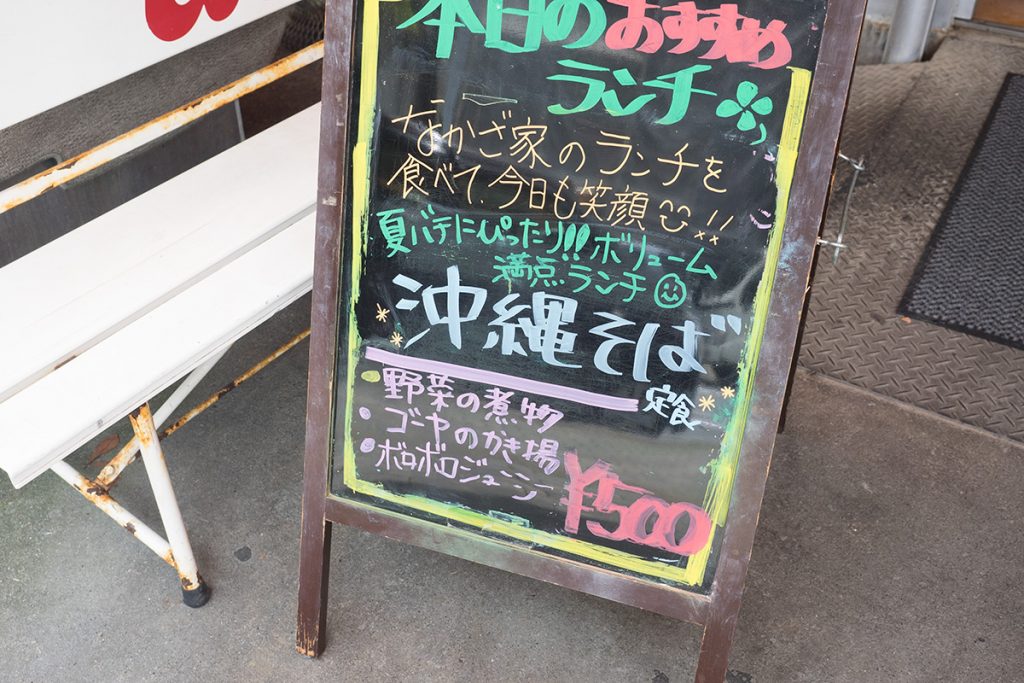 本日のおすすめ
ランチ
なかざ家のランチを
食べて、今日も笑顔!!
夏バテにぴったり!!ボリューム
満点ランチ
沖縄そば
定食
・野菜の煮物
・ゴーヤのかき揚
・ボロボロジューシー
¥500